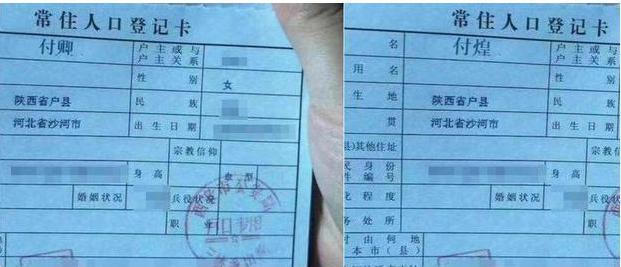 常住人口登记卡
付卿
户主或与
户主关系
性 别
女
陕西省户县
民 族
河北省沙河市
出生日期
宗教信仰
身高
血型
婚姻状况
兵役状况
职 业
常住人口登记卡
名
付煌
户主或
户主关
用 名
性
生 地
陕西省户县
民
贯
河北省沙河市
出生日
县)其他住址
宗教信
民 身 份
件 编 号
身高
化 程 度
婚姻状况
兵役
务 处 所
职
时 由 何 地
本 市 ( 县 )